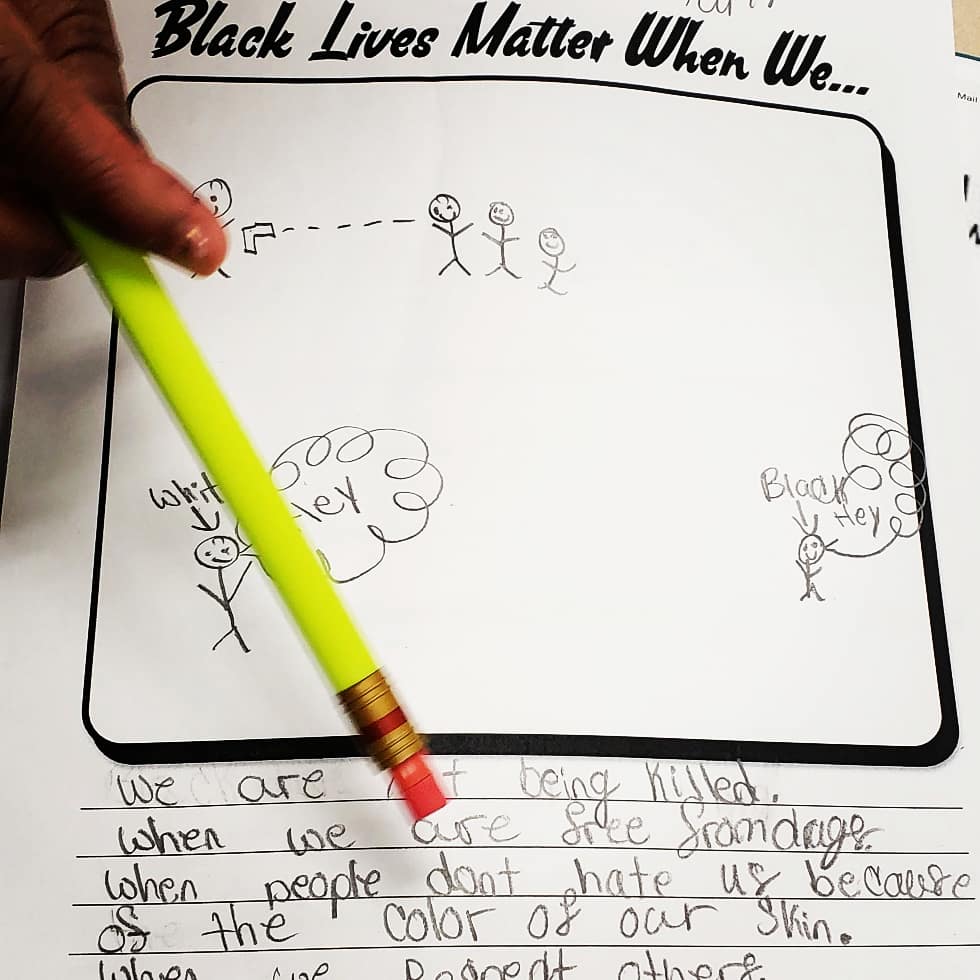 Black Lives Matter When We...
Mail
Whit
ey
Black
Hey
We are t being killed.
When we are free from dage
When people dont hate us because
of the color of our skin.
When we Respedt others